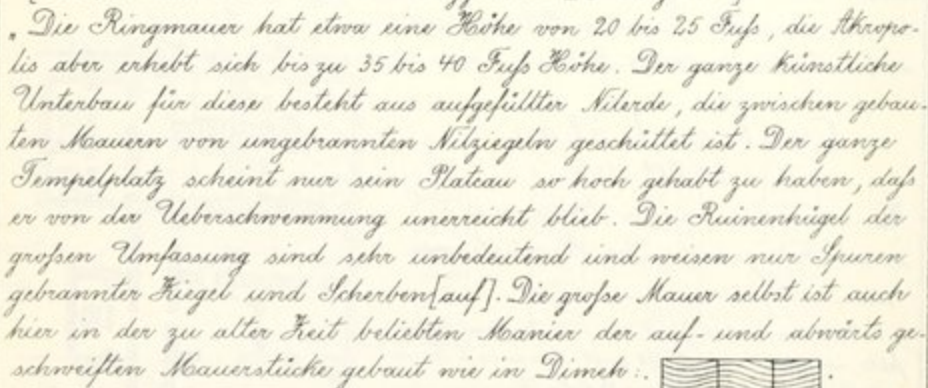 „Die Ringmauer hat etwa eine Höhe von 20 bis 25 Fuſs, die Akropo-
lis aber erhebt sich bis zu 35 bis 40 Fuſs Höhe. Der ganze künstliche
Unterbau für diese besteht aus aufgefüllter Nilerde, die zwischen gebau-
ten Mauern von ungebrannten Nilziegeln geschüttet ist. Der ganze
Tempelplatz scheint nur sein Plateau so hoch gehabt zu haben, daſs
er von der Ueberschwemmung unerreicht blieb. Die Ruinenhügel der
groſsen Umfassung sind sehr unbedeutend und weisen nur Spuren
gebrannter Ziegel und Scherben [auf]. Die groſse Mauer selbst ist auch
hier in der zu alter Zeit beliebten Manier der auf- und abwärts ge-
schweiften Mauerstücke gebaut wie in Dimeh:.